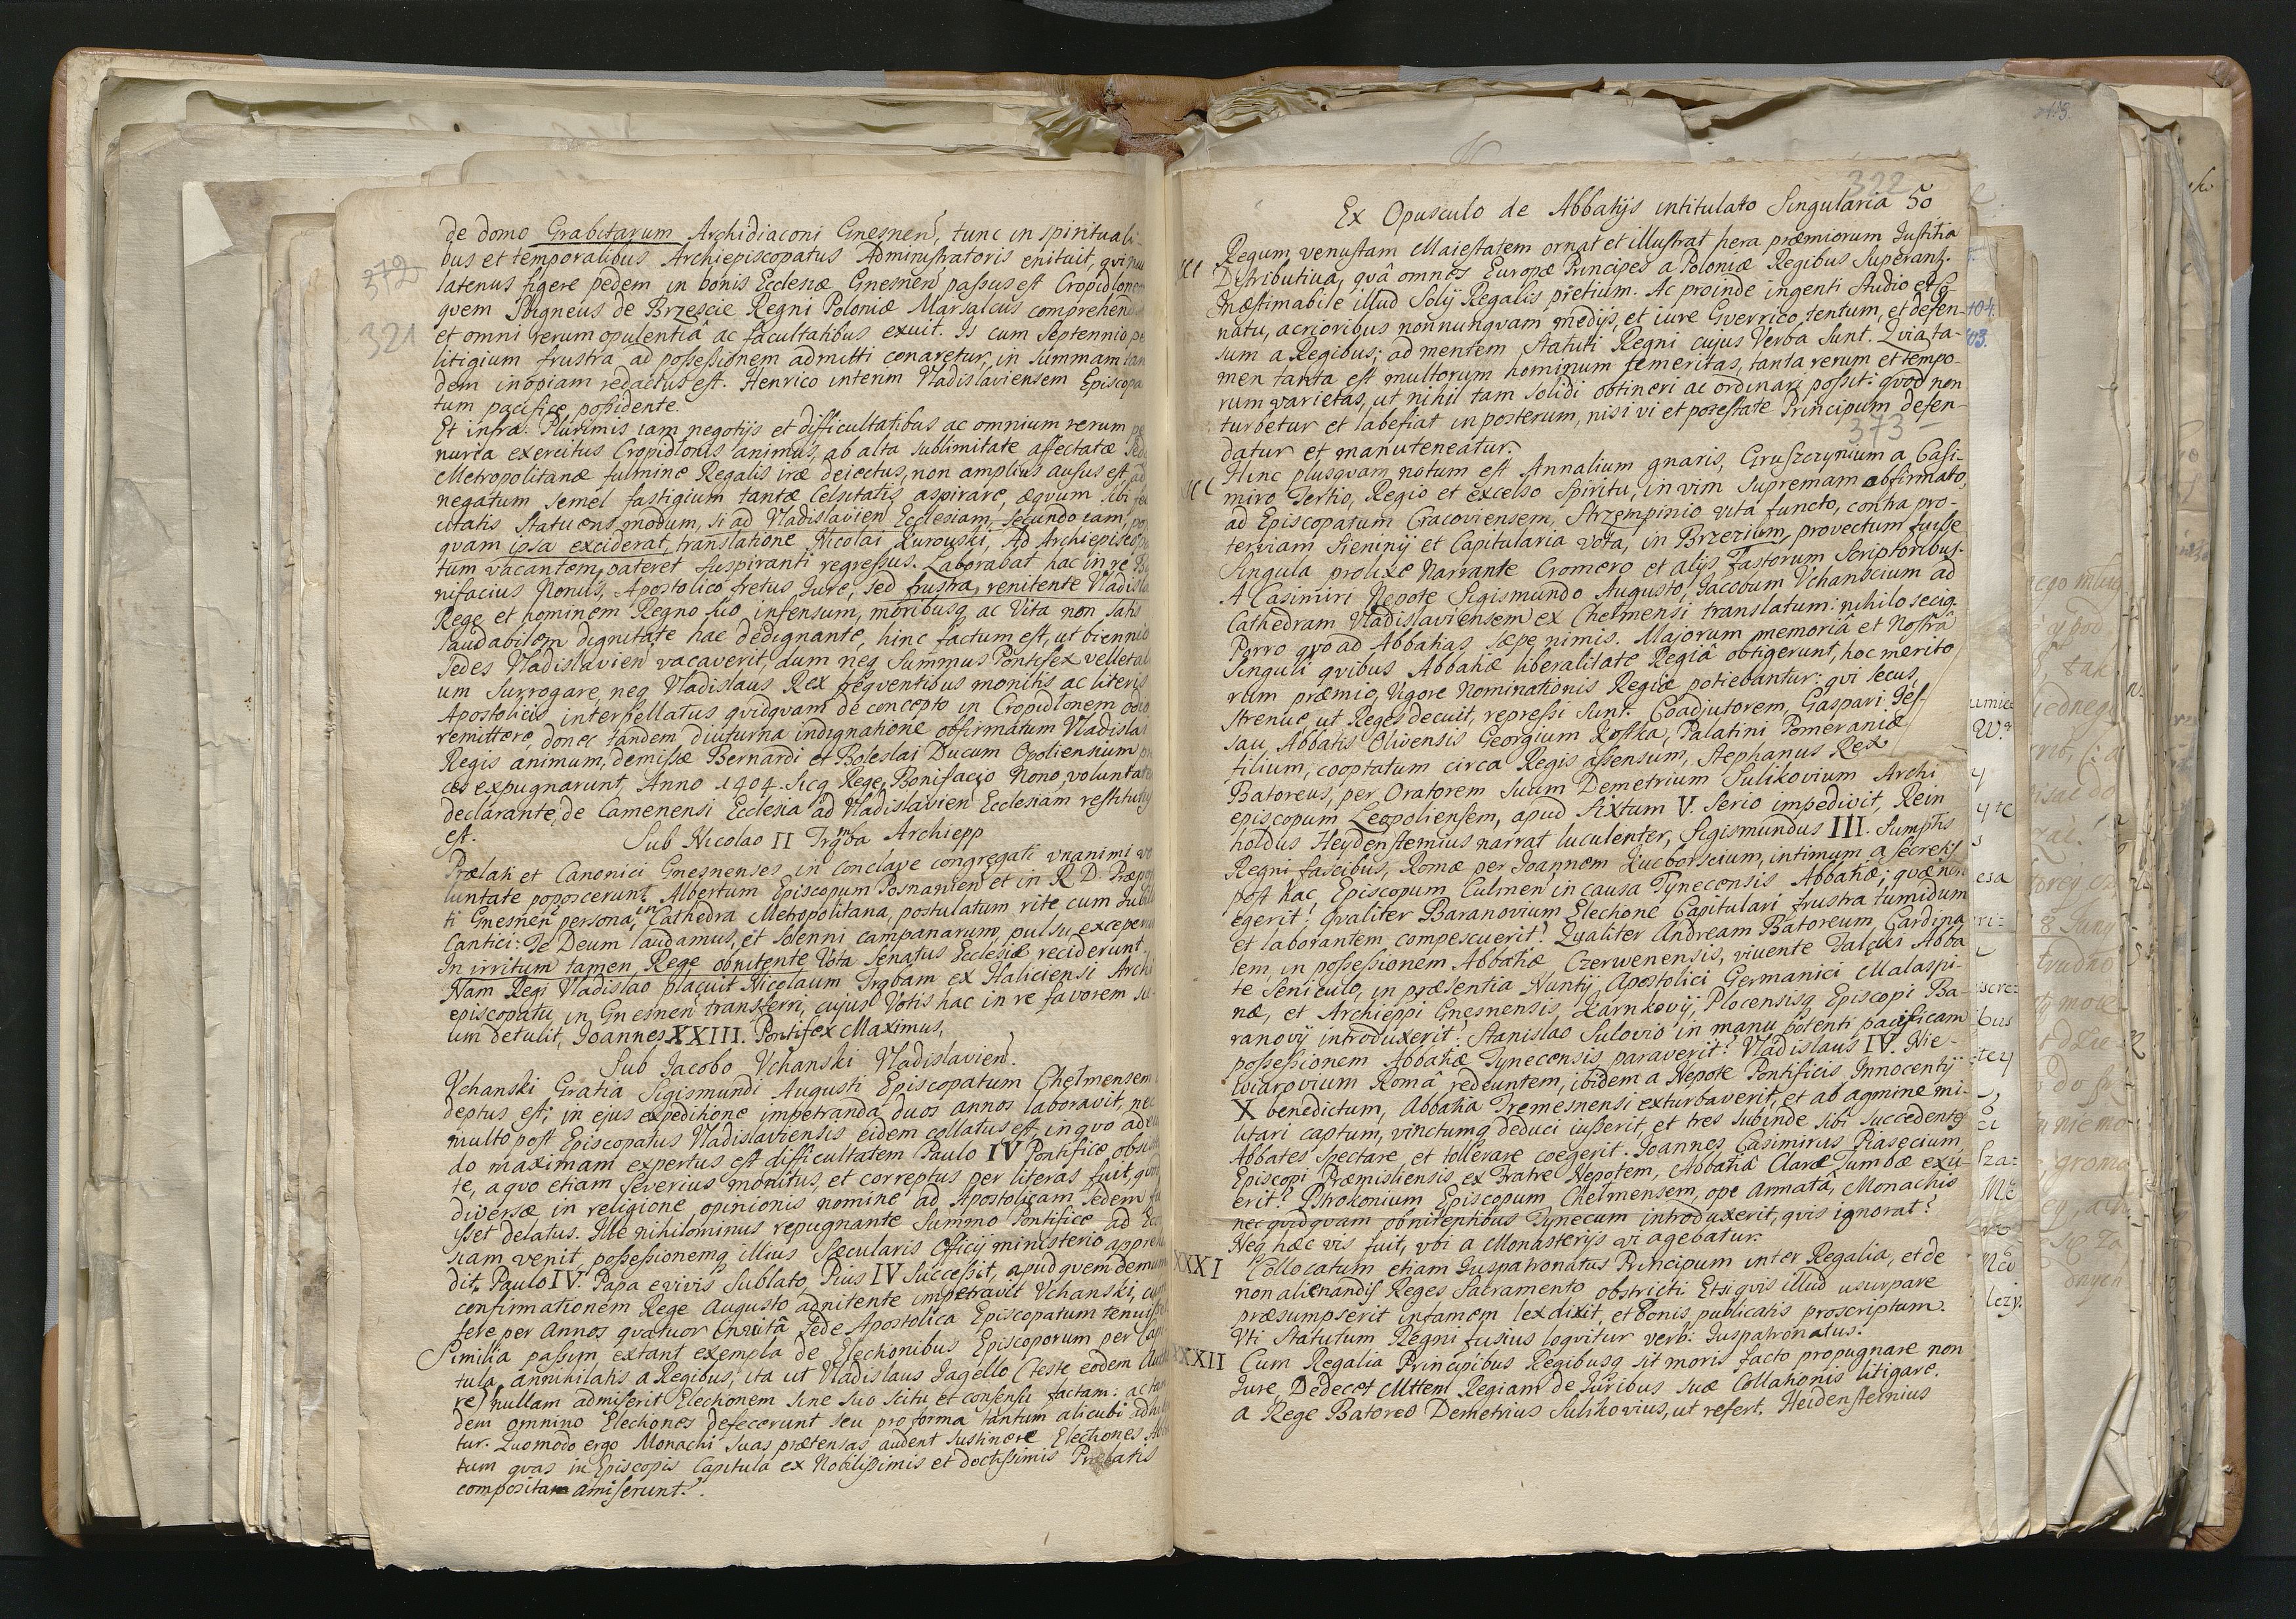 de domo Grabitarum Archidiaconi Gnesnen, tunc in spirituali-
bus et temporalibus Archiepiscopatus Administratoris enituit, qvi
372
latenus figere pedem in bonis Ecclesiæ Gnesnen passus est Cropidlonem
qvem Sbigneus de Brzescie Regni Poloniæ Marsalcus comprehend
et omni rerum opulentiâ ac facultatibus exuit. Is cum Septennio
321
litigium frustra ad possessionem admitti conaretur, in summam tan
dem inopiam redactus est. Henrico interim Vladislaviensem Episcopa
tum pacifice possidente.
Et infra: Plurimis iam negotijs et difficultatibus ac omnium rerum
nuria exercitus Cropidlonis animus, ab alta sublimitate affectatæ
Metropolitanæ fulmine Regalis iræ deiectus, non amplius ausus est ad
negatum semel fastigium tantæ Celsitatis aspirare, æqvum sibi
citatis Statuens modum, si ad Vladislavien Ecclesiam, secundo iam,
qvam ipsa exciderat, translatione Nicolai Kurowski, Ad Archiepisco
tum vacantem, pateret suspiranti regressus. Laborabat hac in re Bo
nifacius Nonus, Apostolico fretus Iure, sed frustra, renitente Vladisla
Rege et hominem Regno suo infensum, moribusq ac Vita non satis
laudabilem dignitate hac dedignante, hinc factum est, ut biennio
Sedes Vladislavien vacaverit, dum neq Summus Pontifex vellet ali
um Surrogare, neq Vladislaus Rex freqventibus monitis ac literis
Apostolicis interpellatus qvidqvam de concepto in Cropidlonem odio
remittere, donec tandem diuturna indignatione obfirmatum Vladislai
Regis animum, demissæ Bernardi et Boleslai Ducum Opoliensium
ces expugnarunt, Anno 1404. Sicq Rege, Bonifacio Nono, voluntatem
declarante, de Camenensi Ecclesia ad Vladislavien Ecclesiam restitutus
est.
Sub Nicolao II Trąba Archiepp
Prælati et Canonici Gnesnenses in conclave congregati vnanimi vo
luntate poposcerunt Albertum Episcopum Posnanien et in R. D. Præpo
ti Gnesnen persona, in Cathedra Metropolitana, postulatum, rite cum Jubilo
Cantici: Te Deum laudamus, et solenni campanarum pulsu excepere
In irritum tamen, Rege obnitente Vota Senatus Ecclesiæ reciderunt.
Nam Regi Vladislao placuit Nicolaum Trąbam ex Haliciensi Archi
episcopatu, in Gnesnen transferri, cujus Votis hac in re favorem su-
um detulit, Joannes XXIII. Pontifex Maximus,
Sub Jacobo Vchanski Vladislavien.
Vchanski Gratia Sigismundi Augusti Episcopatum Chelmensem
deptus est; in ejus expeditione impetranda duos annos laboravit, nec
multo post Episcopatus Vladislaviensis eidem collatus est, in qvo adeun
do maximam expertus est difficultatem Paulo IV Pontifice obsi
te, a qvo etiam severius monitus, et correptus per literas fuit, qvod
diversæ in religione opinionis nomine ad Apostolicam Sedem fu
isset delatus. Ille nihilominus repugnante Summo Pontifice ad Eccl
siam venit, possessionemq illius Sæcularis Officij ministerio appreh
dit, Paulo IV. Papa e vivis Sublato, Pius IV Successit, apud qvem demum
confirmationem Rege Augusto adnitente impetravit Vchanski, cum
fere per Annos qvatuor invitâ Sede Apostolica Episcopatum tenuis
Similia passim extant exempla de Electionibus Episcoporum per Capi
tula, annihilatis a Regibus; ita ut Vladislaus Jagello (teste eodem Aucto
re) nullam admiserit Electionem sine suo scitu et consensu factam: ac tan
dem omnino Electiones defecerunt seu pro forma tantum alicubi adhib
tur. Quomodo ergo Monachi suas prætensas audent sustinere Electiones Abb
tum qvas in Episcopis Capitula ex Nobilissimis et doctissimis Prælatis
composita amiserunt?

322
Ex Opusculo de Abbatijs intitulato Singularia 50
Regum venustam Maiestatem ornat et illustrat hera præmiorum Justitia
Distributiva, qvâ omnes Europæ Principes a Poloniæ Regibus Superant.
Inæstimabile illud Solij Regalis pretium. Ac proinde ingenti Studio et Co
natu, acrioribus nonnunqvam medijs, et iure Gverrico, tentum, et defen-
sum a Regibus; ad mentem Statuti Regni cujus Verba Sunt. Quia ta-
men tanta est multorum hominum temeritas, tanta rerum et tempo-
rum varietas, ut nihil tam solidi obtineri ac ordinari possit: qvod non
turbetur et labefiat in posterum, nisi vi et potestate Principum defen-
373
datur et manuteneatur.
Hinc plusqvam notum est Annalium gnaris, Gruszczynium a Casi-
miro Tertio, Regio et excelso Spiritu, in vim supremam obfirmato,
ad Episcopatum Cracoviensem, Strzempinio vita functo, contra pro-
terviam Sieninij et Capitularia vota, in Brzezium, provectum fuisse
Singula prolixe Narrante Cromero et alijs Fastorum Scriptoribus.
A Casimiri Nepote Sigismundo Augusto, Jacobum Vchanscium ad
Cathedram Vladislaviensem ex Chelmensi translatum: nihilo seciq.
Porro qvo ad Abbatias sæpe nimis. Majorum memoriâ et Nostrâ
Singuli qvibus Abbatiæ liberalitate Regiâ obtigerunt, hoc merito
rum præmio, Vigore Nominationis Regiæ potiebantur: qvi secus,
strenue ut Reges decuit, repressi sunt. Coadjutorem, Gaspari Jes
sau, Abbatis Olivensis Georgium Kostka, Palatini Pomeraniæ
filium, cooptatum circa Regis assensum, Stephanus Rex
Batoreus, per Oratorem suum Demetrium Sulikovium Archi
episcopum Leopoliensem, apud Sixtum V. serio impedivit, Rein
holdus Heydenstemius narrat luculenter, Sigismundus III. sumptis
Regni fascibus, Romæ per Joannem Kucborscium, intimum a secretis
post hac, Episcopum Culmen in causa Tynecensis Abbatiæ; qvæ non
egerit? Qvaliter Baranovium Electione Capitulari frustra tumidum
et laborantem compescuerit? Qualiter Andream Batoreum Cardina
lem, in possessionem Abbatiæ Czerwenensis, vivente Falęcki Abba
te Seniculo, in præsentia Nuntij Apostolici Germanici Malaspi-
næ, et Archieppi Gnesnensis, Karnkovij, Plocensisq Episcopi Ba-
ranovij introduxerit? Stanislao Sulovio in manu potenti pacificam
possessionem Abbatiæ Tynecensis paraverit? Vladislaus IV. Nie-
wiarovium Româ redeuntem, ibidem a Nepote Pontificis Innocentij
X benedictum, Abbatia Tremesnensi exturbaverit, et ab agmine mi-
litari captum, vinctumq deduci iusserit, et tres subinde sibi succedentes
Abbates Spectare et tollerare coegerit. Joannes Casimirus Piasecium
Episcopi Præmisliensis ex Fratre Nepotem, Abbatiâ Claræ Tumbæ exu-
erit? Pstrokonium Episcopum Chelmensem, ope Armatâ, Monachis
nec qvidqvam obnitentibus Tynecum introduxerit, qvis ignorat?
Neq hæc vis fuit, ubi a Monasterijs vi agebatur.
XXXI Collocatum etiam Juspatronatus Principum inter Regalia, et de
non alienandis Reges Sacramento obstricti. Etsi qvis illud usurpare
præsumpserit infamem lex dixit, et bonis publicatis proscriptum.
Vti Statutum Regni fusius loqvitur verb: Juspatronatus.
XXXII Cum Regalia Principibus Regibusq sit moris facto propugnare non
Jure, Dedecet Mttem Regiam de Juribus suæ Collationis litigare.
a Rege Batoreo Demetrius Sulikovius, ut refert. Heidensternius